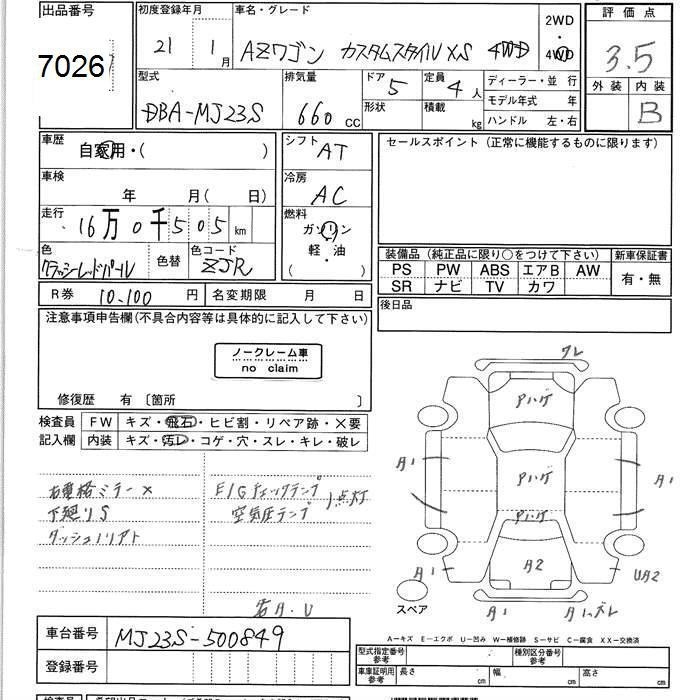 出品番号
7026
初度登録年月
21年 1月
車名・グレード
AZワゴン カスタムスタイル XS 4WD
2WD
4WD
評価点
3.5
外装 内装
B
型式
DBA-MJ23S
排気量
660 CC
ドア 5
形状
定員 4人
積載 kg
ディーラー・並行
モデル年式 年
ハンドル 左・右
車歴
自家用・( )
車検
年 月( 日)
走行
16万0千505km
色
色替
色コード
ZJR
シフト
AT
冷房
AC
燃料
ガソリン
軽・油
( )
セールスポイント (正常に機能するものに限ります)
装備品 (純正品に限り○をつけて下さい) 新車保証書
PS PW ABS エアB AW
SR ナビ TV カワ
有・無
後日品
R券 10,100円 名変期限 月 日
注意事項申告欄(不具合内容等は具体的に記入して下さい)
ノークレーム車
no claim
修復歴 有 〔箇所 〕
検査員
記入欄
FW キズ・飛石・ヒビ割・リペア跡・×要
内装 キズ・汚レ・コゲ・穴・スレ・キレ・破レ
右電格ミラー×
下廻りS
E/Gチェックランプ
空気圧ランプ
点灯
ワレ
Pハゲ
Pハゲ
Pハゲ
A1
A1
A2
A1
UA2
A1
スペア
車台番号 MJ23S-500849
登録番号
A-キズ E-エクボ U-凹み W-補修跡 S-サビ C-腐食 XX-交換済
型式指定番号
参考
種別区分番号
参考
車庫証明用
参考
長さ cm 幅 cm 高さ cm